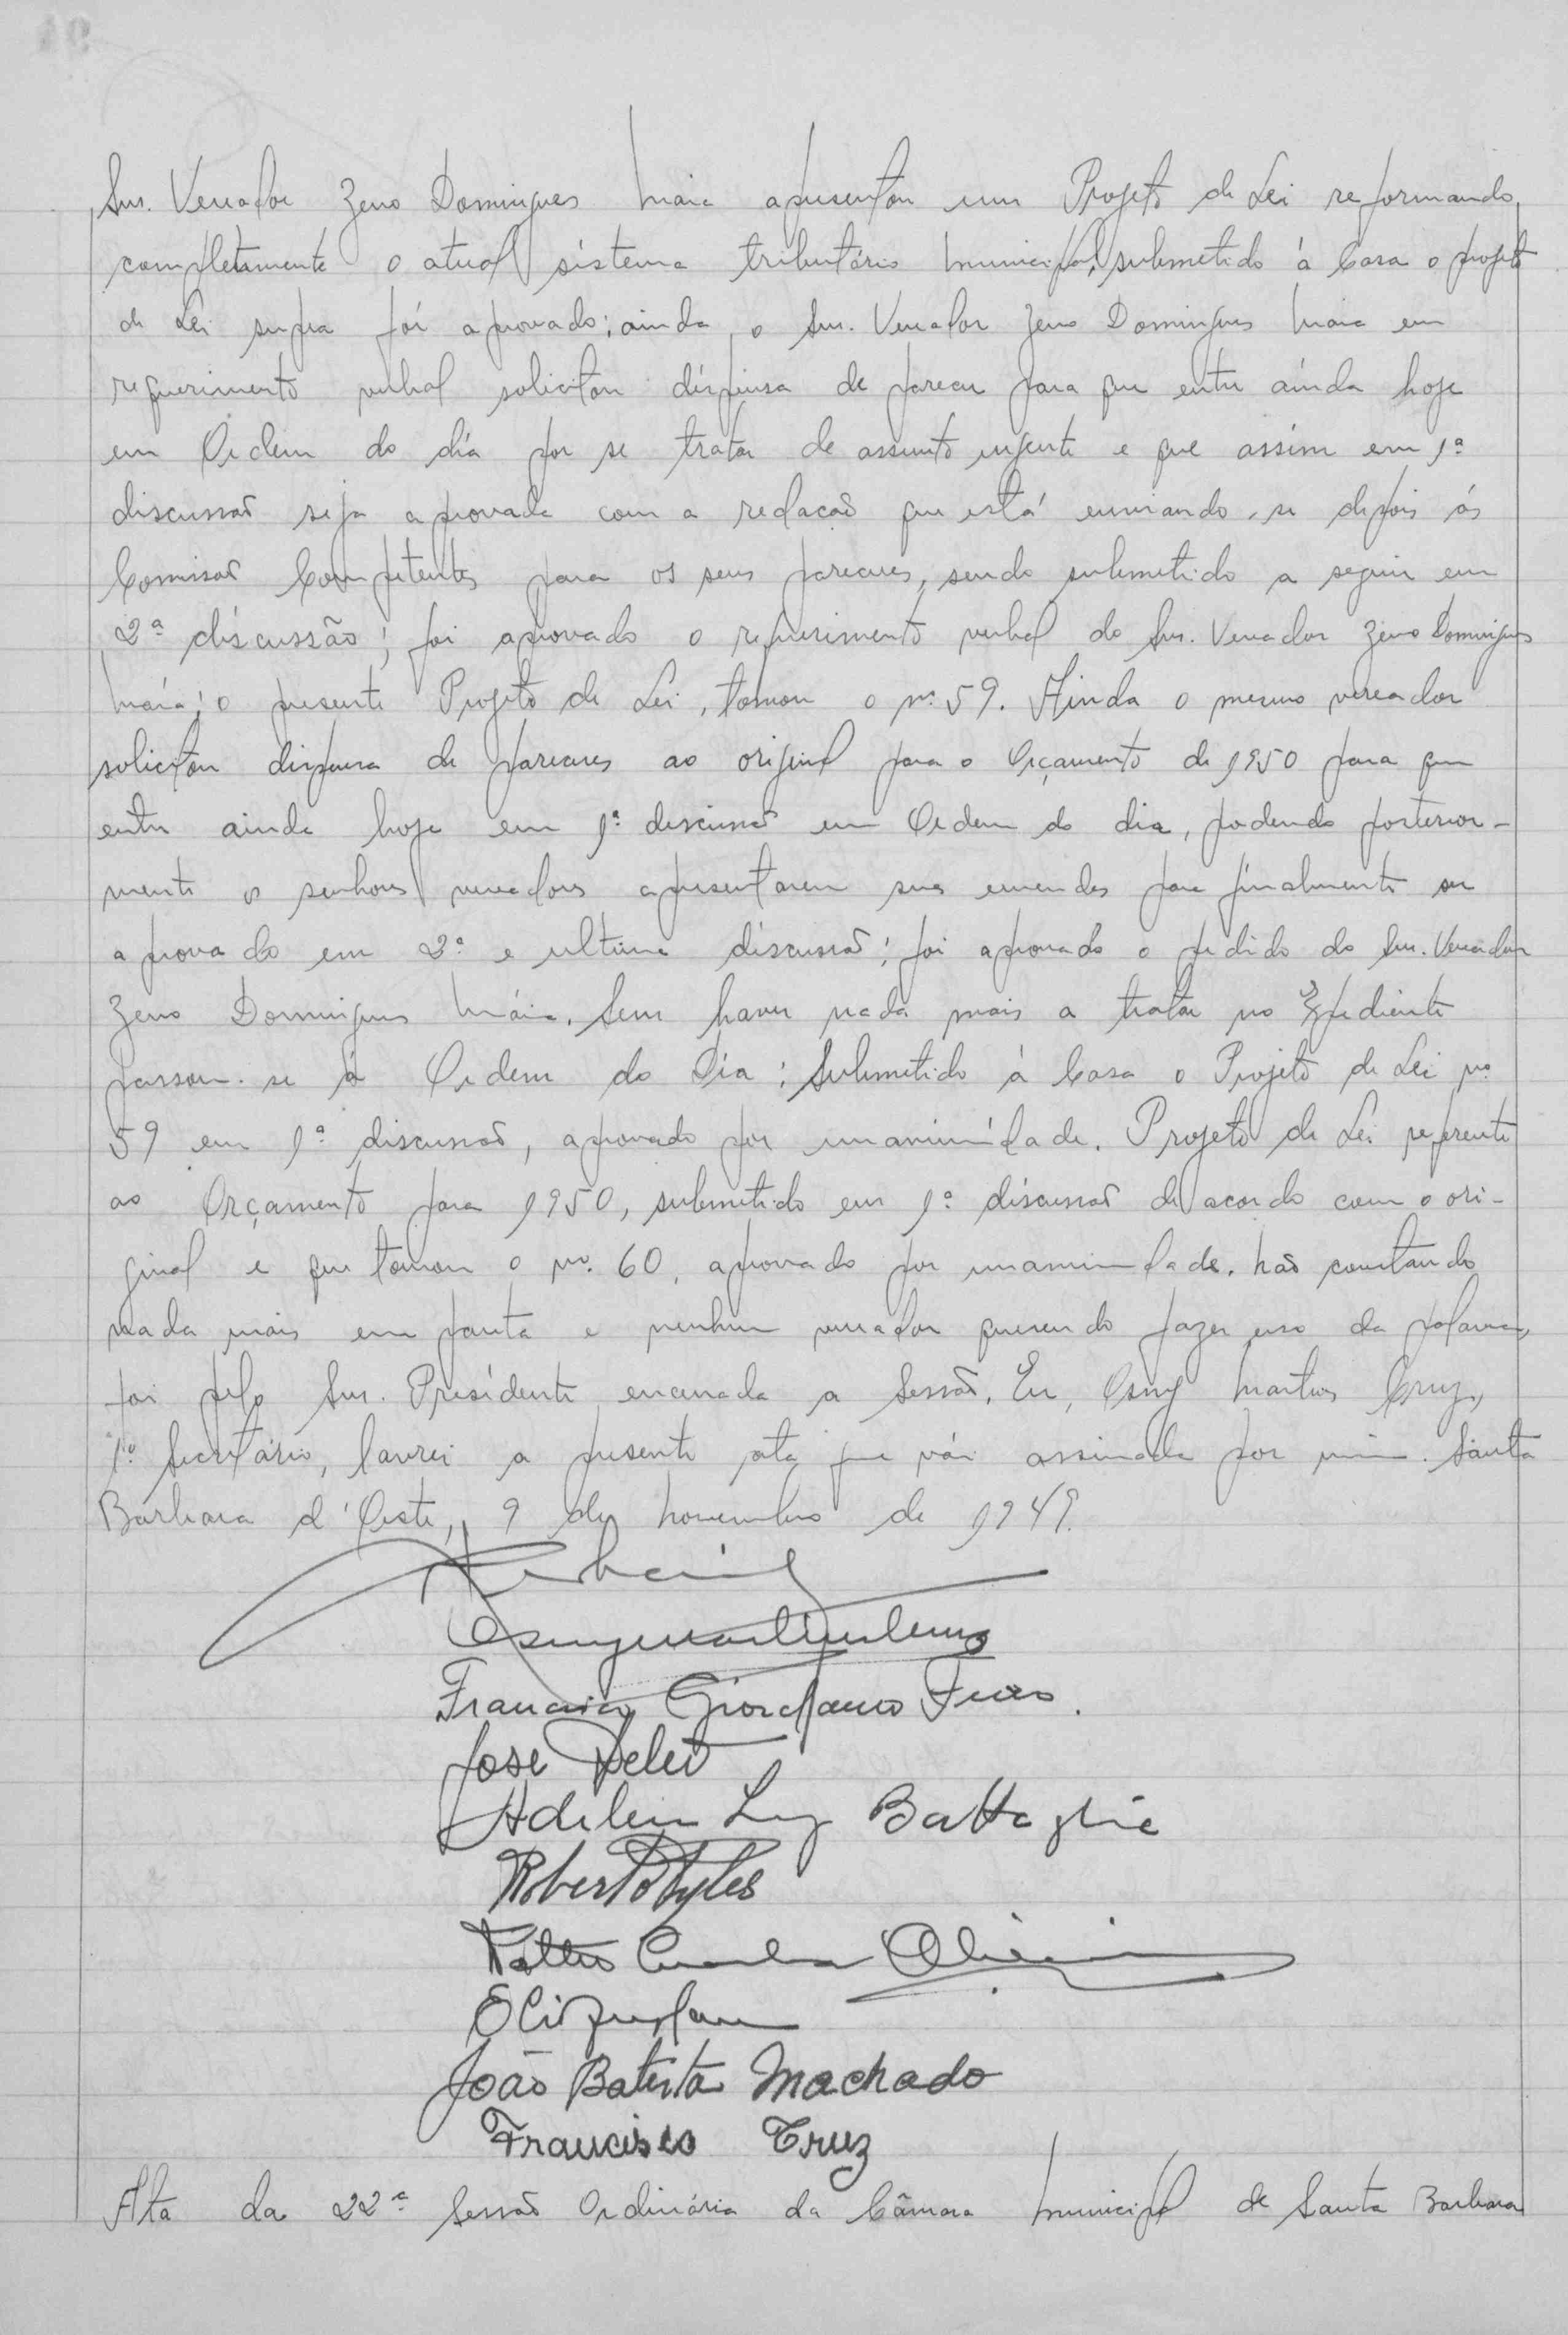 Snr. Vereador Zeno Domingues Maia apresentou um Projeto de Lei reformando
completamente o atual sistema tributário municipal, submetido á Casa o projeto
de Lei supra foi aprovado; ainda o Snr. Vereador Zeno Domingues Maia em
requerimento verbal solicitou dispensa de parecer para que entre ainda hoje
em Ordem do dia por se tratar de assunto urgente e que assim em 1ª
discussão seja aprovada com a redacão que está enviando-se depois ás
Comissão Competentes para os seus pareceres, sendo submetido a seguir em
2ª discussão; foi aprovado o requerimento verbal do Snr. Vereador Zeno Domingues
Maia; o presente Projeto de Lei, tomou o nº 59. Ainda o mesmo vereador
solicitou dispensa de pareceres ao original para o Orçamento de 1950 para que
entre ainda hoje em 1ª discussão em Ordem do dia, podendo posterior-
mente os senhores vereadores apresentarem suas emendas para finalmente ser
aprovado em 2ª e ultima discussão; foi aprovado o pedido do Snr. Vereador
Zeno Domingues Maia. Sem haver nada mais a tratar no Expediente
passou-se á Ordem do Dia: Submetido à Casa o Projeto de Lei nº
59 em 1ª discussão, aprovado por unanimidade. Projeto de Lei referente
ao Orçamento para 1950, submetido em 1ª discussão de acordo com o ori-
ginal e que tomou o nº. 60, aprovado por unanimidade. Não constando
nada mais em pauta e nenhum vereador querendo fazer uso da palavra,
foi pelo Snr. Presidente encerrada a Sessão. Eu, Osny Martins Cruz,
1º Secretário, lavrei a presente ata que vai assinada por mim. Santa
Barbara d'Oeste, 9 de novembro de 1949.
Francisco Giordano
José
Luiz Battaglia
Roberto
Oliveira
João Batista Machado
Francisco Cruz
Ata da 22ª Sessão Ordinária da Câmara Municipal de Santa Barbara